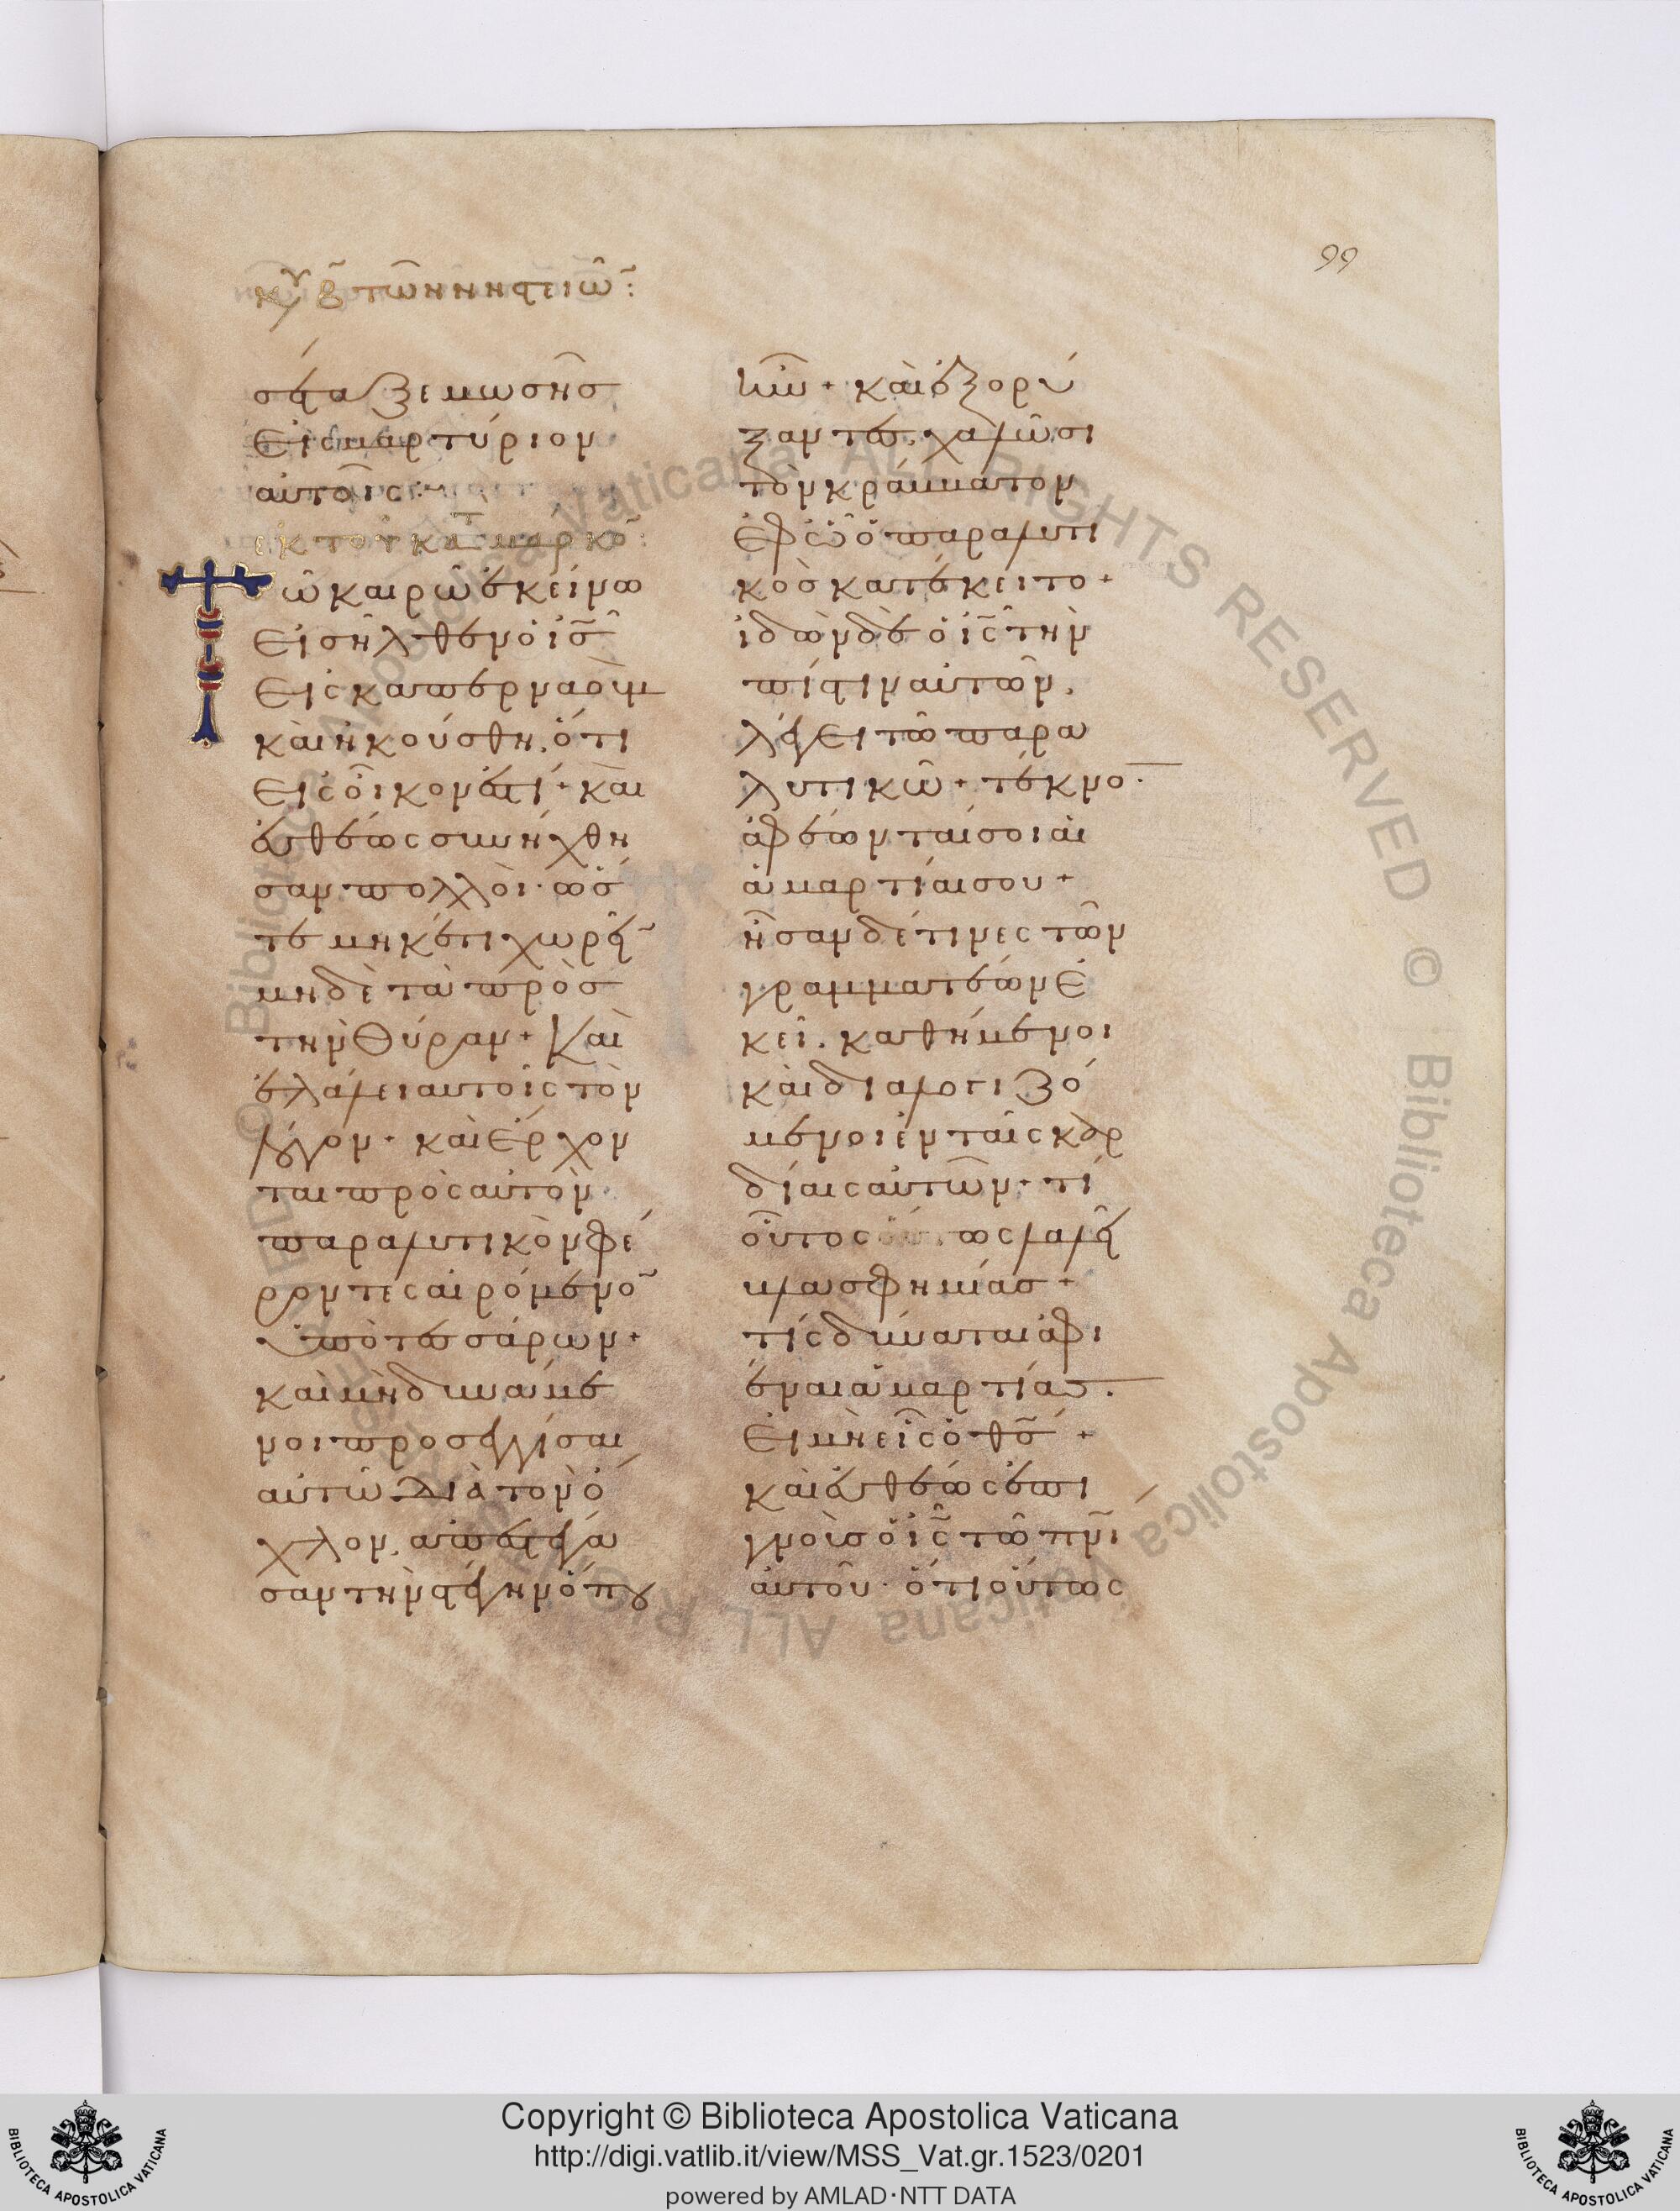 99
κυ β τῶν νηστειῶ:
σέταξε μωσῆσ
Εἰς μαρτύριον
αὐτοῖς:
ἐκ τοῦ κατ μάρκο:
Τῶ καιρῶ ἐκείνω
Εἰσῆλθεν ὁ ἰς
Εἰς καπερναοὺμ
καὶ ἠκούσθη. ὅτι
Εἰς οἶκον ἐστί + καὶ
ἐυθέως συνήχθη
σαν πολλοὶ· ὥσ
τε μηκέτι χωρεῖ
μηδὲ τὰ πρὸσ
τὴν θύραν + Καὶ
ἐλάλει αυτοῖς τὸν
λόγον + καὶ ἔρχον
ται πρὸς αὐτὸν
παραλυτικὸν φέ
ροντες αἰρόμενο
ὑπὸ τεσσάρων +
καὶ μὴ δυνάμε
νοι προσεγγίσαι
αὐτῶ διὰ τὸν ὄ
χλον, ἀπεστέγα
σαν τὴν στέγην ὅπου
ἦν + καὶ ἐξορύ
ξαντες. χαλῶσι
τὸν κράμματον
Ἐφ ῶ ὁ παραλυτι
κὸσ κατέκειτο +
ἰδὼν δὲ ὁ ἰς τὴν
πίστιν αὐτῶν,
λέγει τῶ παρα
λυτικῶ + τέκνο
ἀφέωνταί σοι αἱ
ἁμαρτίαι σου +
ἦσαν δέ τινες τῶν
γραμματέων ἐ
κεῖ. καθήμενοι
καὶ διαλογιζό
μενοι ἐν ταῖς καρ
δίαις αὐτῶν + τί
οὗτος οὕτως λαλεῖ
βλασφημίασ +
τίς δύναται ἀφι
έναι ἁμαρτίας.
Εἰ μὴ εἷς ὁ θσ +
καὶ ἐυθέως ἐπι
γνοὺσ ὁ ἰς τῶ πνι
ἀυτοῦ· ὅτι οὕτως
Copyright © Biblioteca Apostolica Vaticana
http://digi.vatlib.it/view/MSS_Vat.gr.1523/0201
powered by AMLAD·NTT DATA